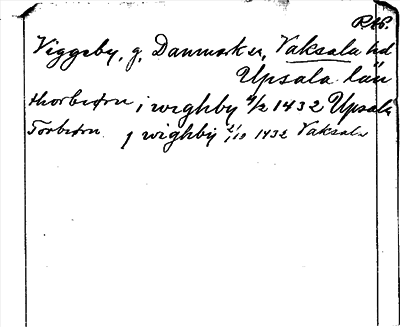 RAP.
Viggeby, g, Danmark sn, Vaksala hd
Upsala län
thorbiorn i wighby 4/2 1432 Upsala
Torbiorn j wighby 2/10 1432 Vaksala